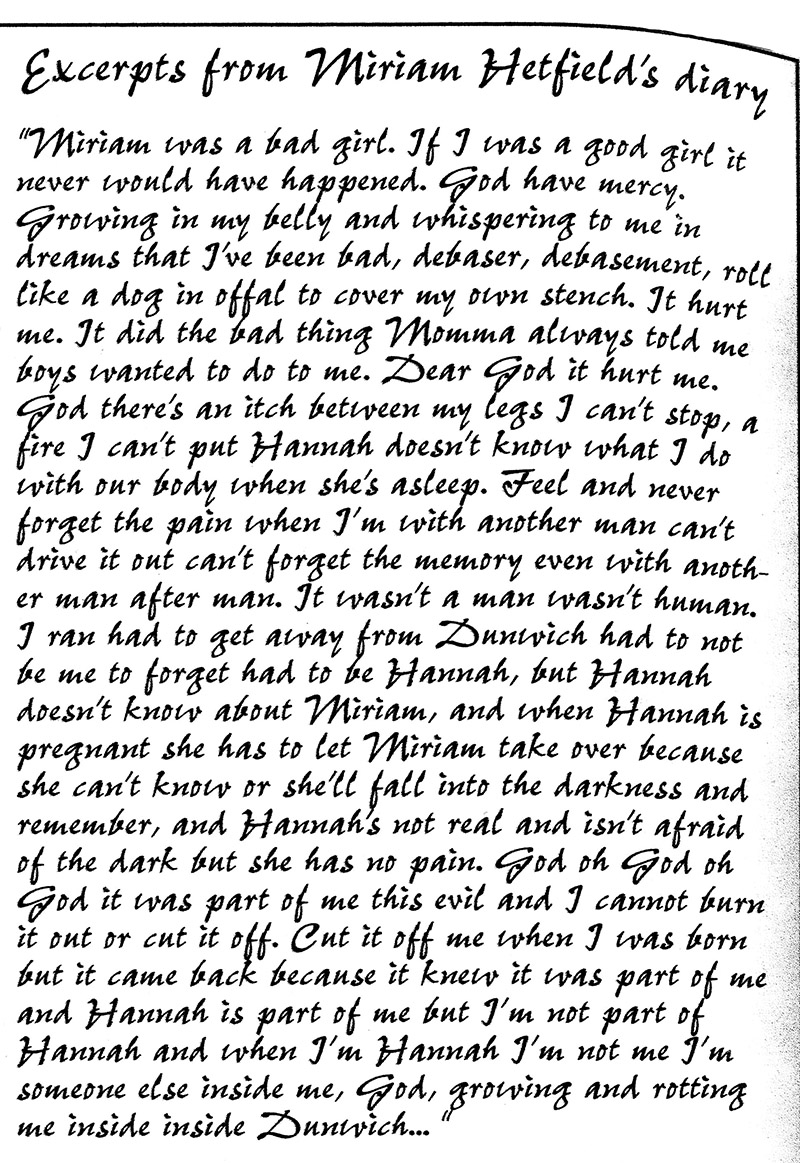 Excerpts from Miriam Hetfield's diary
"Miriam was a bad girl. If I was a good girl it
never would have happened. God have mercy.
Growing in my belly and whispering to me in
dreams that I've been bad, debaser, debasement, roll
like a dog in offal to cover my own stench. It hurt
me. It did the bad thing Momma always told me
boys wanted to do to me. Dear God it hurt me.
God there's an itch between my legs I can't stop, a
fire I can't put Hannah doesn't know what I do
with our body when she's asleep. Feel and never
forget the pain when I'm with another man can't
drive it out can't forget the memory even with anoth-
er man after man. It wasn't a man wasn't human.
I ran had to get away from Dunwich had to not
be me to forget had to be Hannah, but Hannah
doesn't know about Miriam, and when Hannah is
pregnant she has to let Miriam take over because
she can't know or she'll fall into the darkness and
remember, and Hannah's not real and isn't afraid
of the dark but she has no pain. God oh God oh
God it was part of me this evil and I cannot burn
it out or cut it off. Cut it off me when I was born
but it came back because it knew it was part of me
and Hannah is part of me but I'm not part of
Hannah and when I'm Hannah I'm not me I'm
someone else inside me, God, growing and rotting
me inside inside Dunwich... "